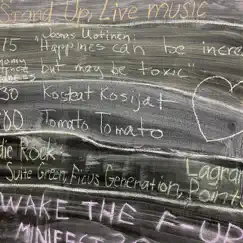 Stand Up, Live music
75 "Joonas Uotinen,
"Happiness can be incre
but may be toxic"
30 Kosteat Kosijat
80 Tomato Tomato
die Rock
Suite Green, Ficus Generation,
Lagran
Points
WAKE THE F UP
MINIFEST